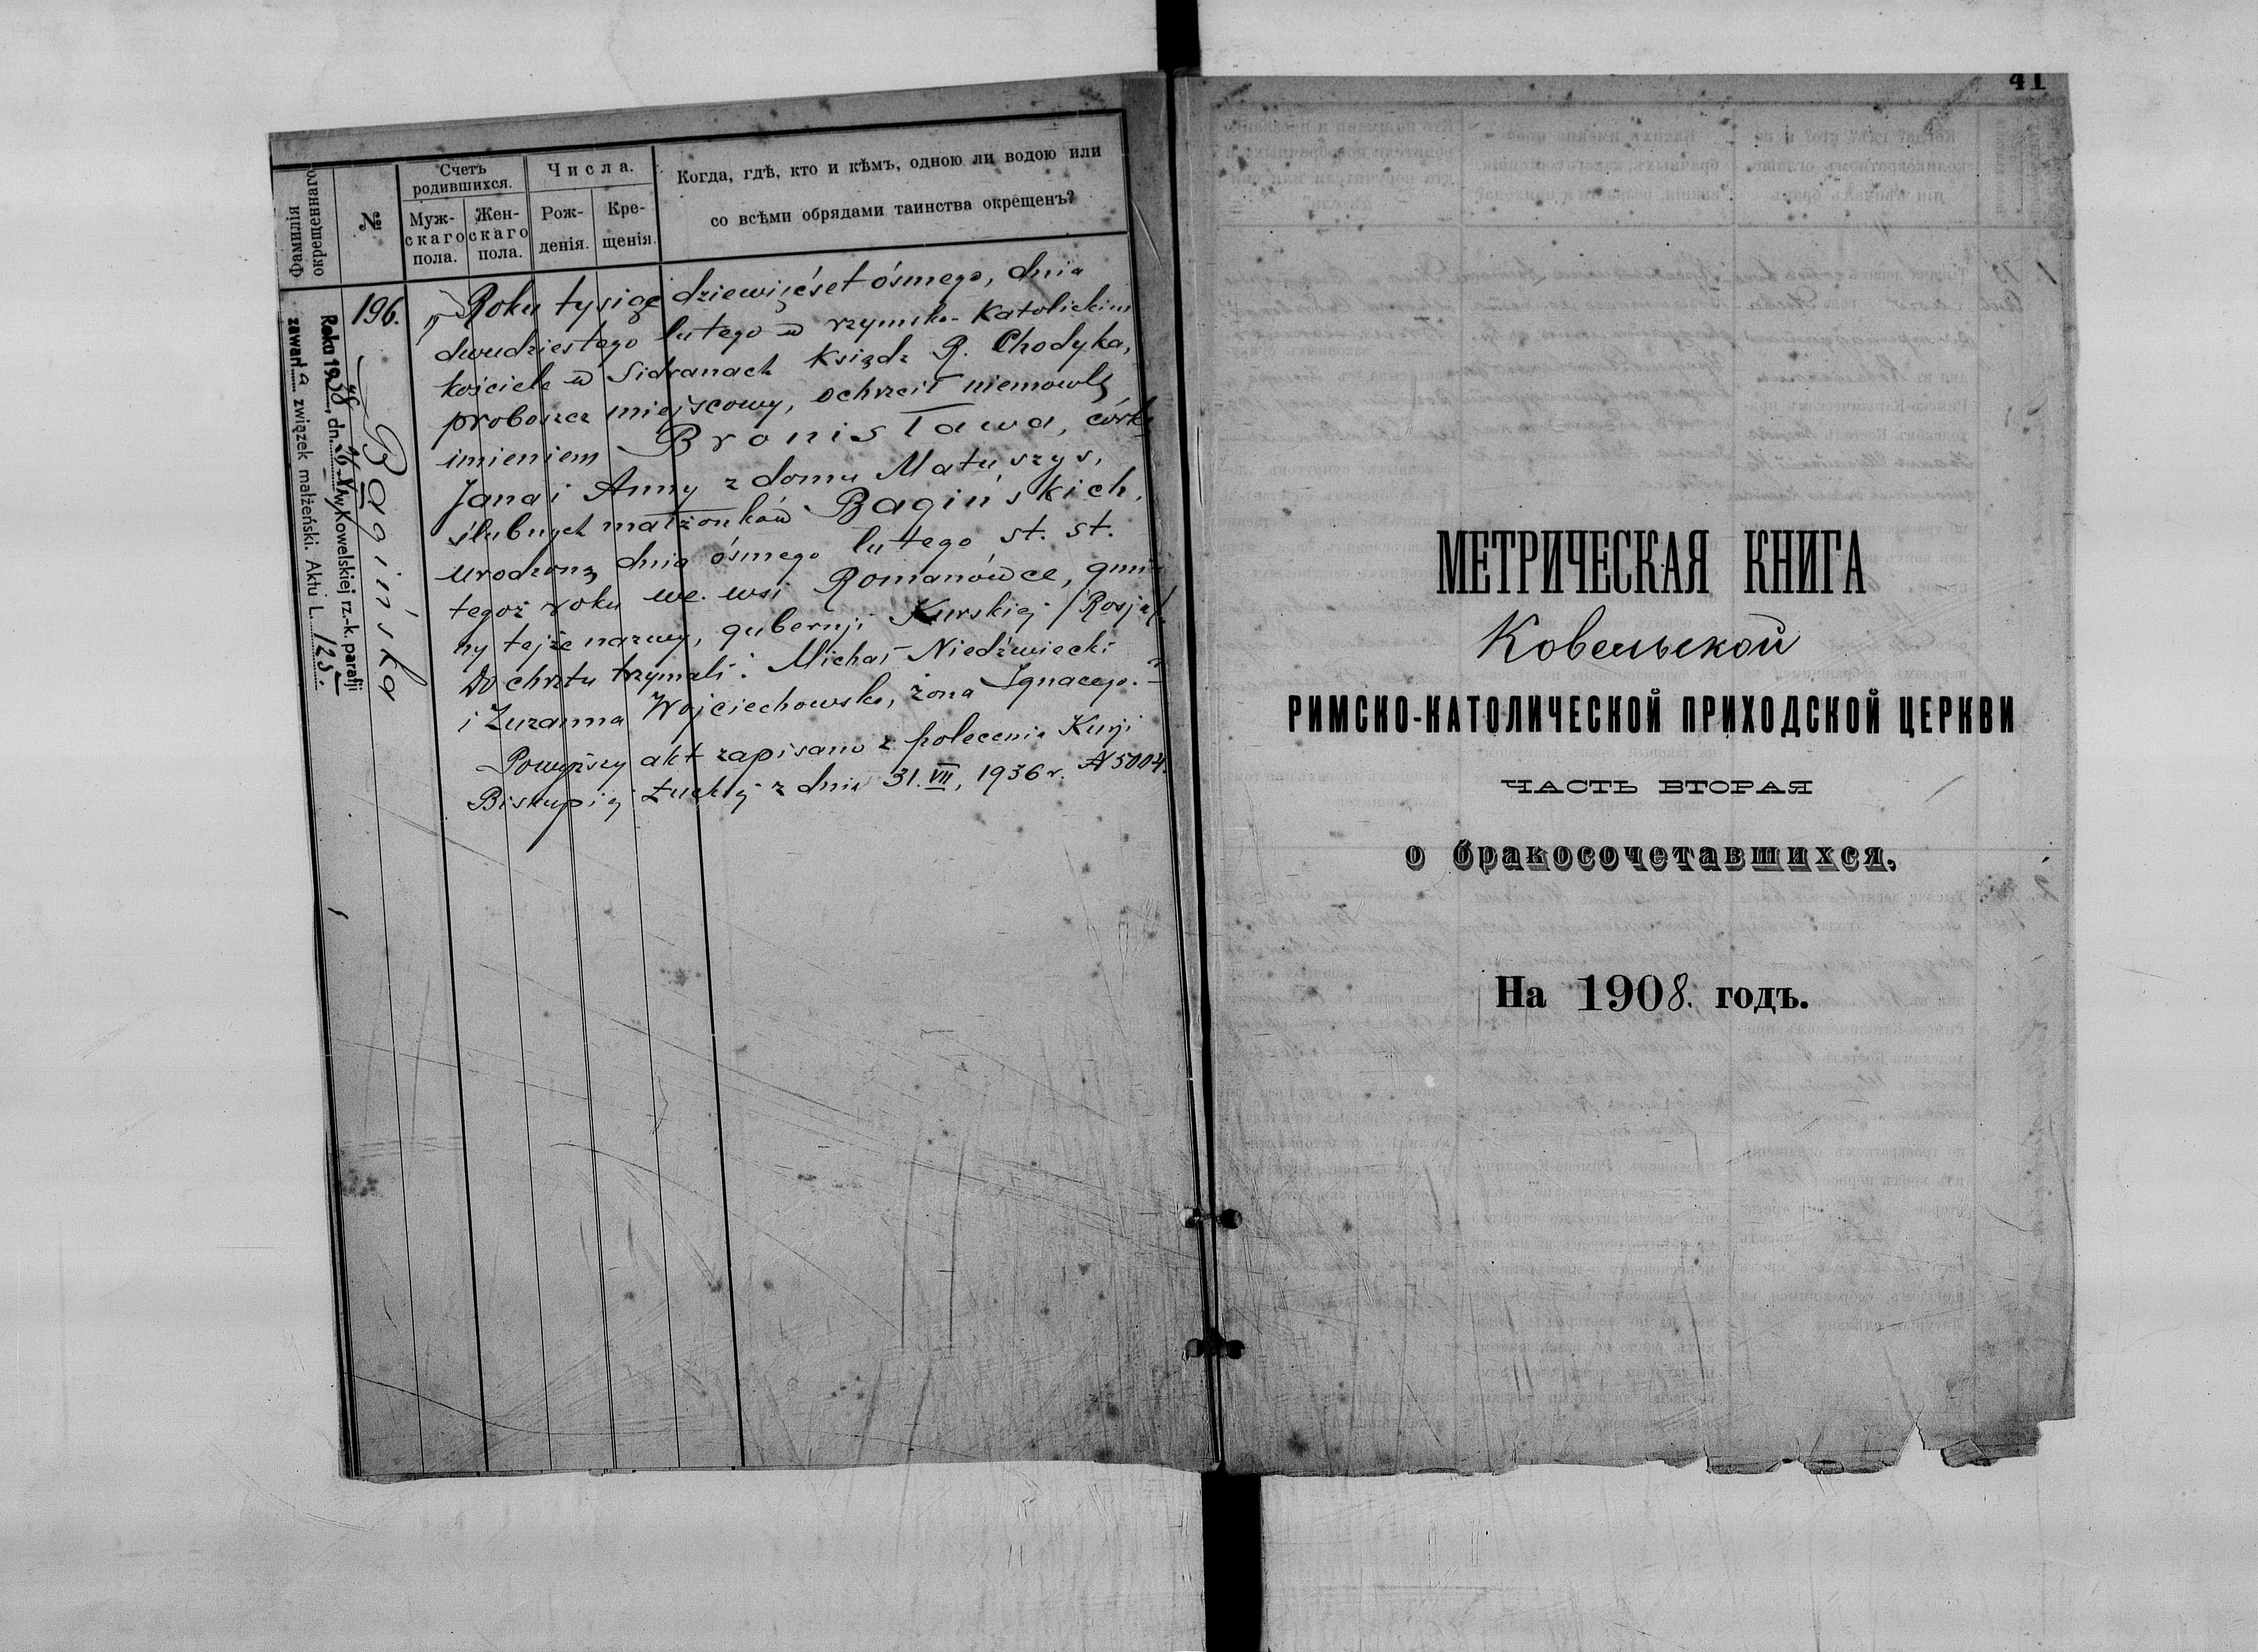 Фамилія окрещеннаго.
№
Счетъ родившихся.
Муж-
скаго
пола.
Жен-
скаго
пола.
Числа.
Рож-
денія.
Кре-
щенія.
Когда, гдѣ, кто и кѣмъ, одною ли водою или
со всѣми обрядами таинства окрещенъ?
196.
Bagińska
Roku 1938, dn. 26 XI w Kowelskiej rz.-k. parafji
zawarła związek małżeński. Aktu L. 125.
Roku tysiąc dziewięćset ósmego, dnia
dwudziestego lutego w rzymsko-Katolickim
kościele w Sidranach ksiądz R. Chodyka,
proboszcz miejscowy, ochrzcił niemowlę
imieniem Bronisława, córkę
Jana i Anny z domu Matuszys,
ślubnych małżonków Bagińskich,
urodzoną dnia ósmego lutego st. st.
tegoż roku we wsi Romanówce, gmi-
ny tejże nazwy, gubernji Kurskiej /Rosja/.
Do chrztu trzymali: Michał Niedźwiecki
i Zuzanna Wojciechowska, żona Ignacego.
Powyższy akt zapisano z polecenia Kurji
Biskupiej Łuckiej z dnia 31.VII, 1936 r. N 5004.
41
МЕТРИЧЕСКАЯ КНИГА
Ковельской
РИМСКО-КАТОЛИЧЕСКОЙ ПРИХОДСКОЙ ЦЕРКВИ
ЧАСТЬ ВТОРАЯ
о бракосочетавшихся,
На 1908. годъ.